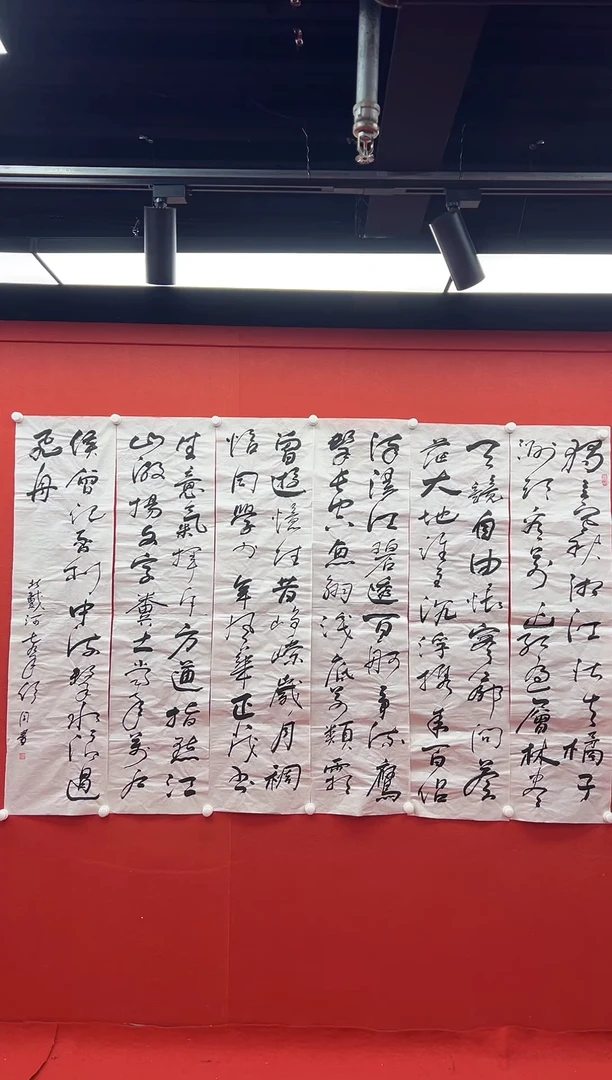 獨立寒秋湘江北去橘子
洲頭看萬山紅遍層林盡
天競自由悵寥廓問蒼
茫大地誰主沉浮攜來百侶
染漫江碧透百舸爭流鷹
擊長空魚翔淺底萬類霜
曾遊憶往昔崢嶸歲月稠
恰同學少年風華正茂書
生意氣揮斥方遒指點江
山激揚文字糞土當年萬戶
侯曾記否到中流擊水浪遏
飛舟
戴河 舒同書